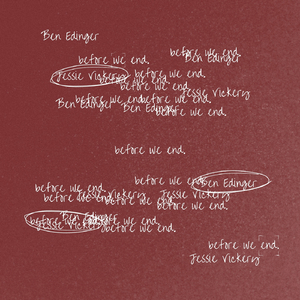 Ben Edinger
before we end.
Ben Edinger
before we end.
Jessie Vickery
before we end.
before we end.
before we end.
Jessie Vickery
before we end.
before we end.
Ben Edinger
Ben Edinger
before we end.
before we end.
before we end.
Ben Edinger
before we end.
before we end.
Jessie Vickery
Jessie Vickery
before we end.
before we end.
Ben Edinger
before we end.
before we end.
Jessie Vickery
before we end.
before we end.
Jessie Vickery